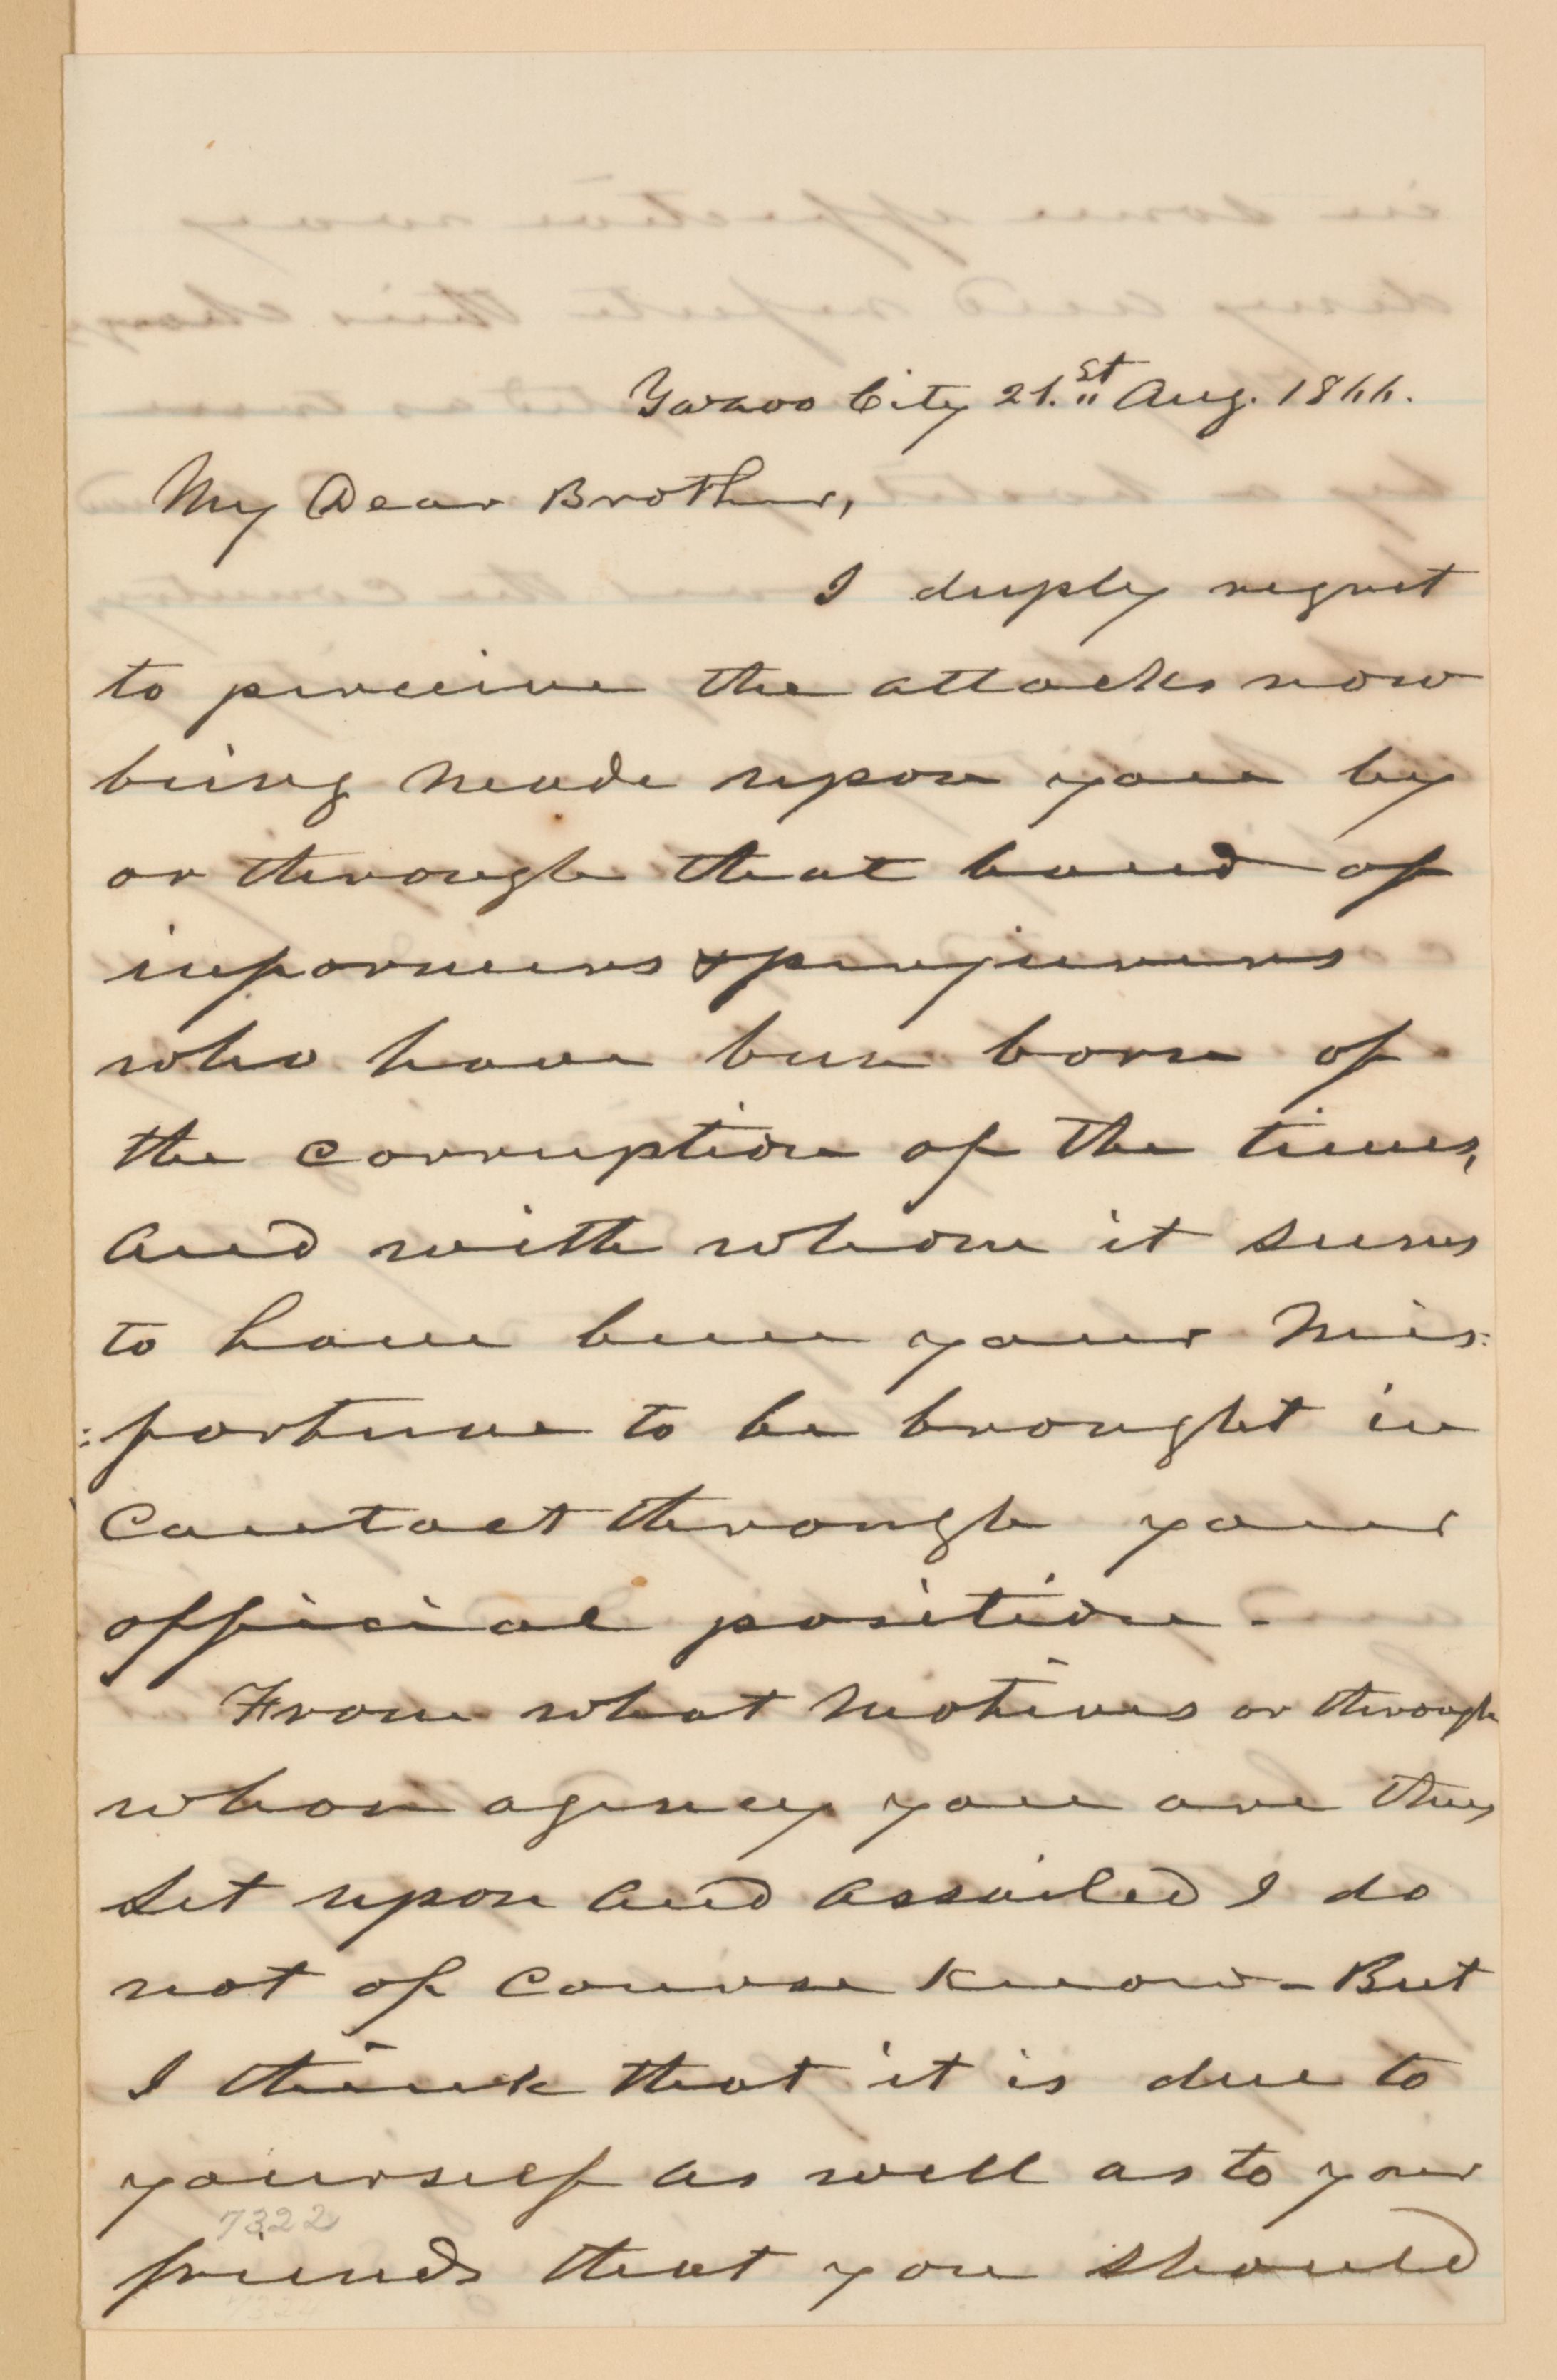 Yazoo City 21.st Aug. 1866.
My Dear Brother,
I deeply regret
to perceive the attacks now
being made upon you by
or through that band of
informers & perjurers
who have been born of
the corruption of the times,
and with whom it seems
to have been your mis:
:fortune to be brought in
contact through your
official position.
From what motives or through
whose agency you are thus
set upon and assailed I do
not of course know - But
I think that it is due to
yourself as well as to your
7322
friends that you should